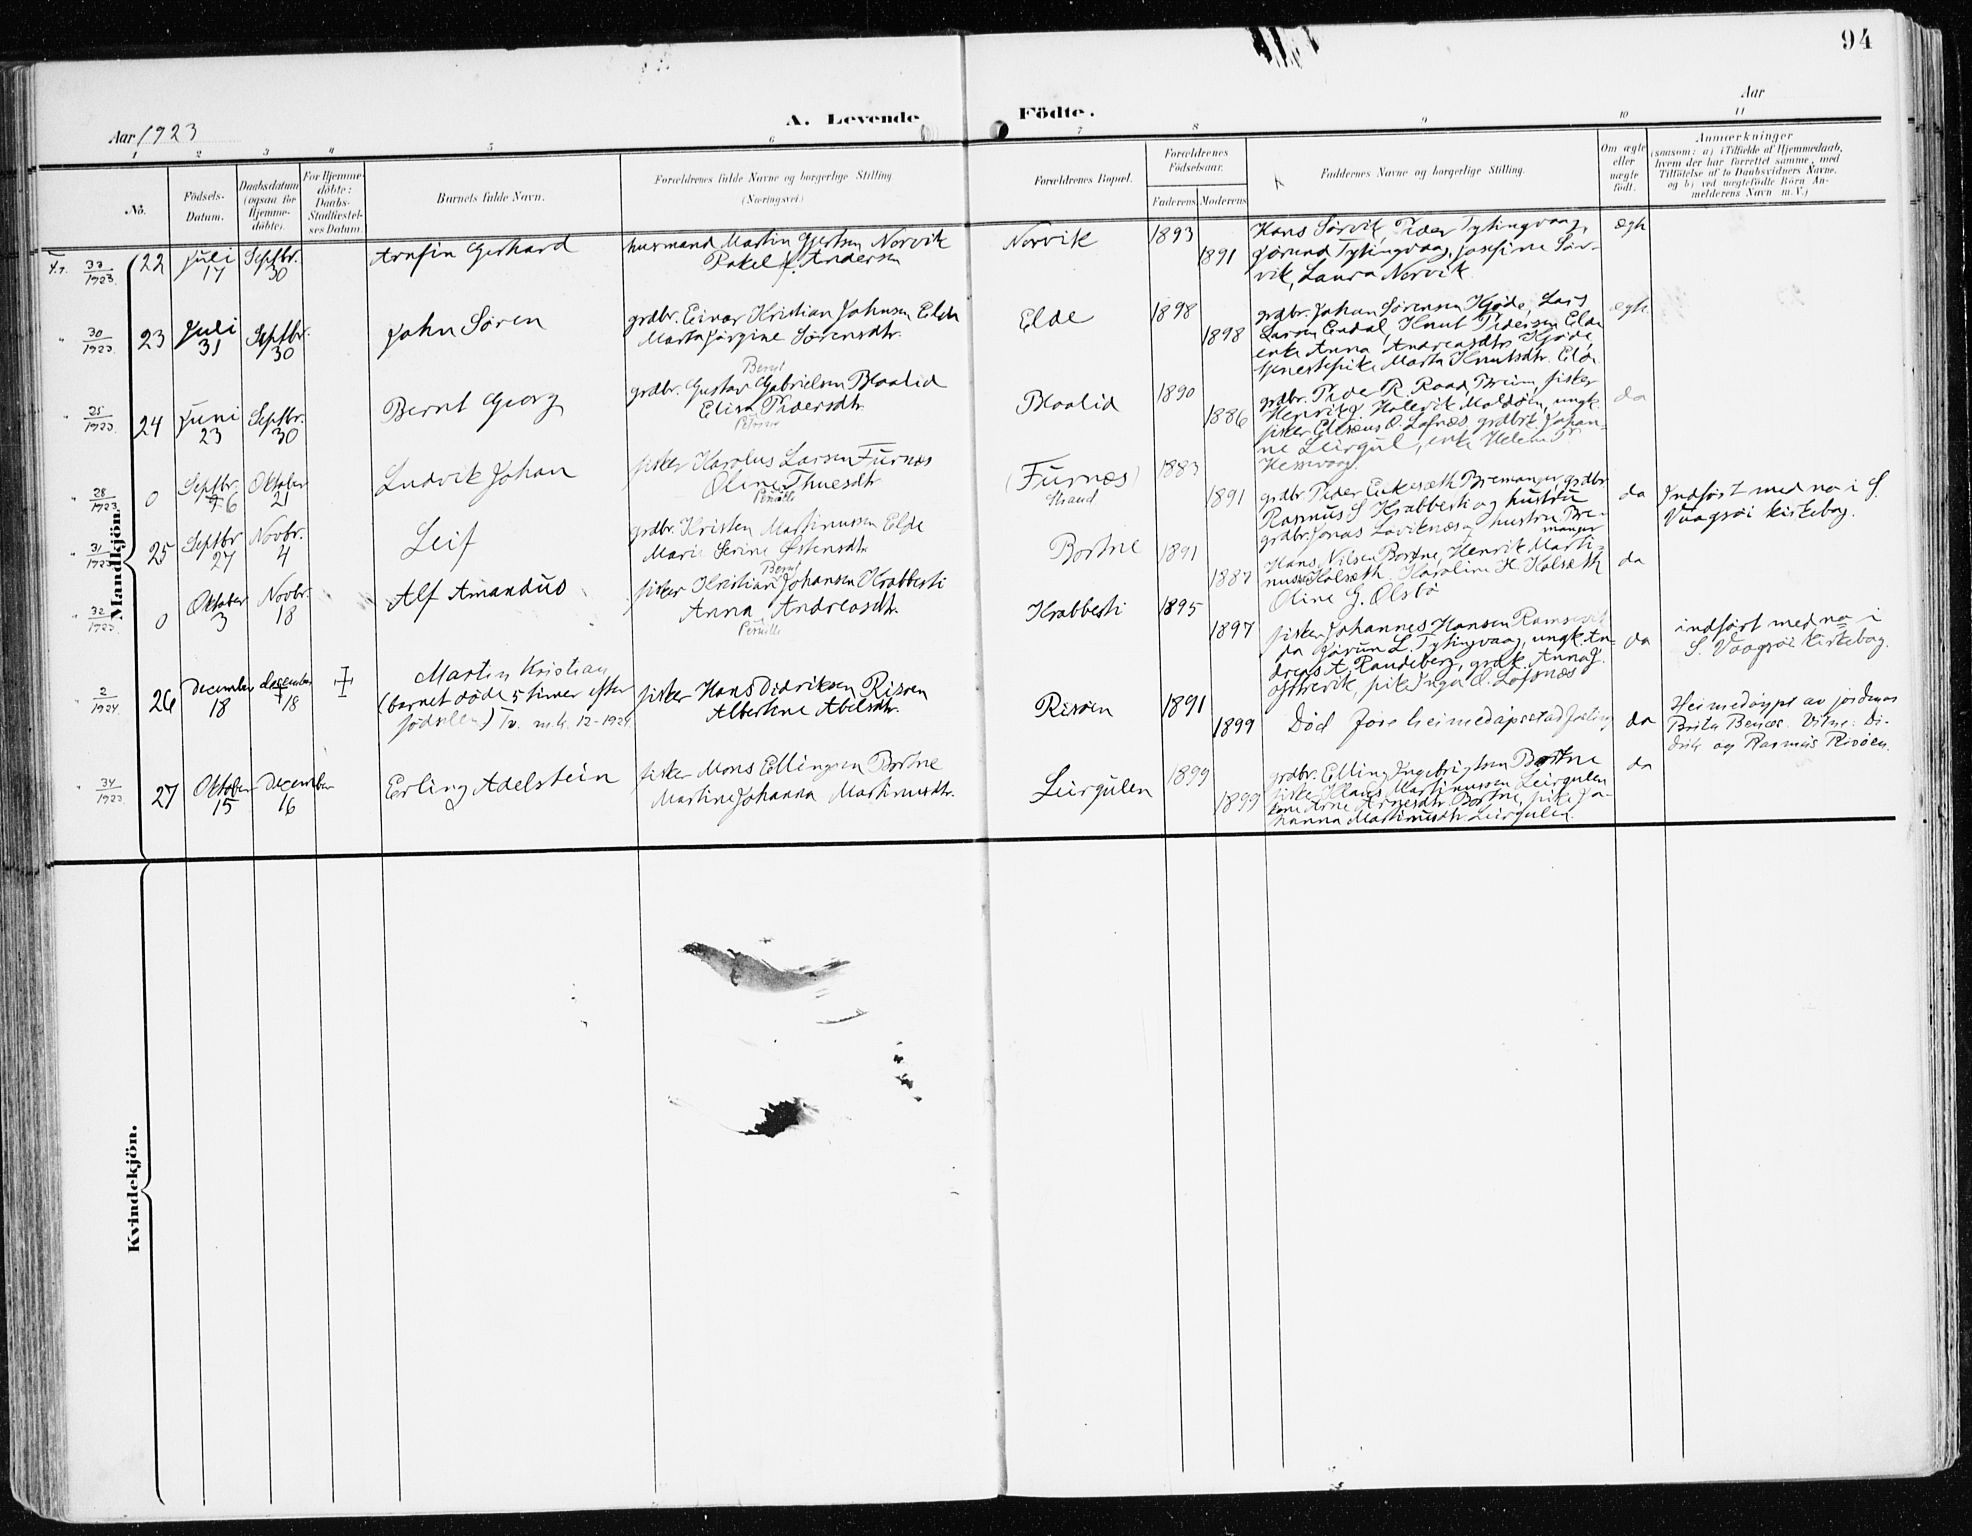 94
Aar 1923
A. Levende Födte.
Aar
1 2 3 4 5 6 7 8 9 10 11
No.
Födsels-Datum.
Daabsdatum (ogsaa for Hjemme-döbte).
For Hjemme-döbte: Daabs-Stadfæstel-ses Datum.
Barnets fulde Navn.
Forældrenes fulde Navne og borgerlige Stilling.
(Næringsvei)
Forældrenes Bopæl.
Forældrenes Födselsaar.
Faderens. Moderens.
Faddernes Navne og borgerlige Stilling.
Om ægte eller uægte födt.
Anmærkninger
(saasom: a) i Tilfælde af Hjemmedaab,
hvem der har forrettet samme, med
Tilföielse af to Daabsvidners Navne,
og b) ved uægtefödte Börn An-
melderens Navn m. V.)
Mandkjön.
22 Juli 17 Septbr. 30 Arnfin Gerhard
husmand Martin Gjertsen Norvik
Rakel Andersen
Norvik 1893 1891
Hans Sørvik, Peder Tytingvaag,
Jørund Tytingvaag, Josefine Sør-
vik, Laura Norvik
ægte
30/1923 23 Juli 31 Septbr. 30 John Søren
grdbr. Einar Kristian Johnsen Elde
Marta Jørgine Sørensdtr.
Elde 1898 1898
grdbr. Johan Sørensen Kjøde, Lars
Larsen Endal, Knut Pedersen Elde
enke Anna Andreasdtr Kjøde,
tjenestepike Marta Knutsdtr. Elde
ægte
25/1923 24 Juni 23 Septbr. 30 Bernt Georg
Bernt
grdbr. Gustav Gabrielsen Blaalid
Elisa Pedersdtr.
Blaalid 1890 1886
grdbr. Peder R. Raad, Breim, fisker
Henrik J. Halevik Maldøen, ungk.
fisker Elisæus O. Lofnæs, grdbrk Johan-
ne Leirgul, enke Helene P.
Hessvaag.
da
28/1923 0 Septbr. 26 Oktober 21 Ludvik Johan
fisker Karolus Larsen Furnæs
Oline Thuesdtr.
Pernille
(Furnæs)
Strand
1883 1891
grdbr. Peder Eikesæth Bremanger grdbr
Rasmus S Krabbesti og hustru
grdbr. Jonas Løviknæs og hustru Bre-
manger
da
Indført med no i S.
Vaagsøi kirkebog.
31/1923 25 Septbr 27 Novbr. 4 Leif
grdbr. Kristen Martinussen Elde
Marie Serine Østensdtr.
Bortne 1891 1887
Hans Nilsen Bortne, Henrik Marti-
nussen Kolseth Karoline H. Kolseth
Oline G. Ølstø
da
32/1923 0 Oktober 3 Novbr. 18 Alf Amandus
Bernt
fisker Kristian Johansen Krabbesti
Anna Andreasdtr.
Pernille
Krabbesti 1895 1897
fisker Johannes Hansen Ramsevik
da Jørun L. Tytingvaag, ungk. An-
dreas A. Randeberg, grdk. Anna J.
pike Inga O. Lofsnæs
da
indført med no i
S. Vaagsøi kirkebog.
2/1924 26 December 18 December 18 Martin Kristian
(barnet døde 5 timer efter
fødselen)
fisker Hans Didriksen Risøen
Albertine Abelsdtr.
Risøen 1891 1899
Død føre heimedåpsstadfesting
da
Heimedøypt av jordmor
Brita Vitne: Di-
drik og Rasmus Risøen.
34/1923 27 Oktober 15 December 16 Erling Adelstein
fisker Mons Ellingsen Bortne
Martine Johanna Martinusdtr.
Leirgulen 1899 1899
grdbr. Elling Ingebrigtsen Bortne
fisker Klaus Martinussen Leirgulen
kone Arne Arnesdtr. Bortne, pike Jo-
hanna Martinusdtr Leirgulen.
da
Kvindekjön.